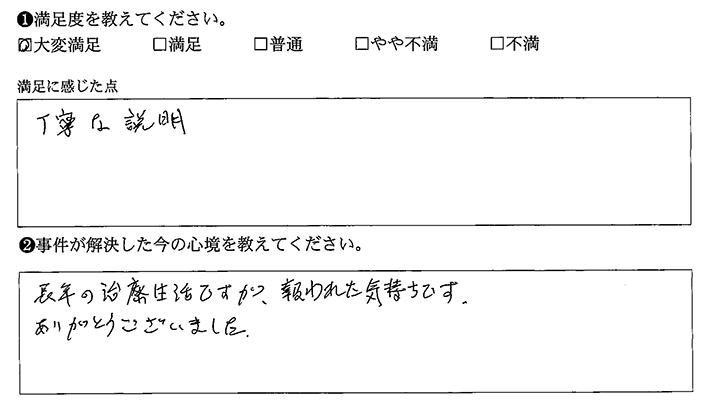 ❶満足度を教えてください。
☑大変満足 □満足 □普通 □やや不満 □不満
満足に感じた点
丁寧な説明
❷事件が解決した今の心境を教えてください。
長年の治療生活ですが、報われた気持ちです。
ありがとうございました。